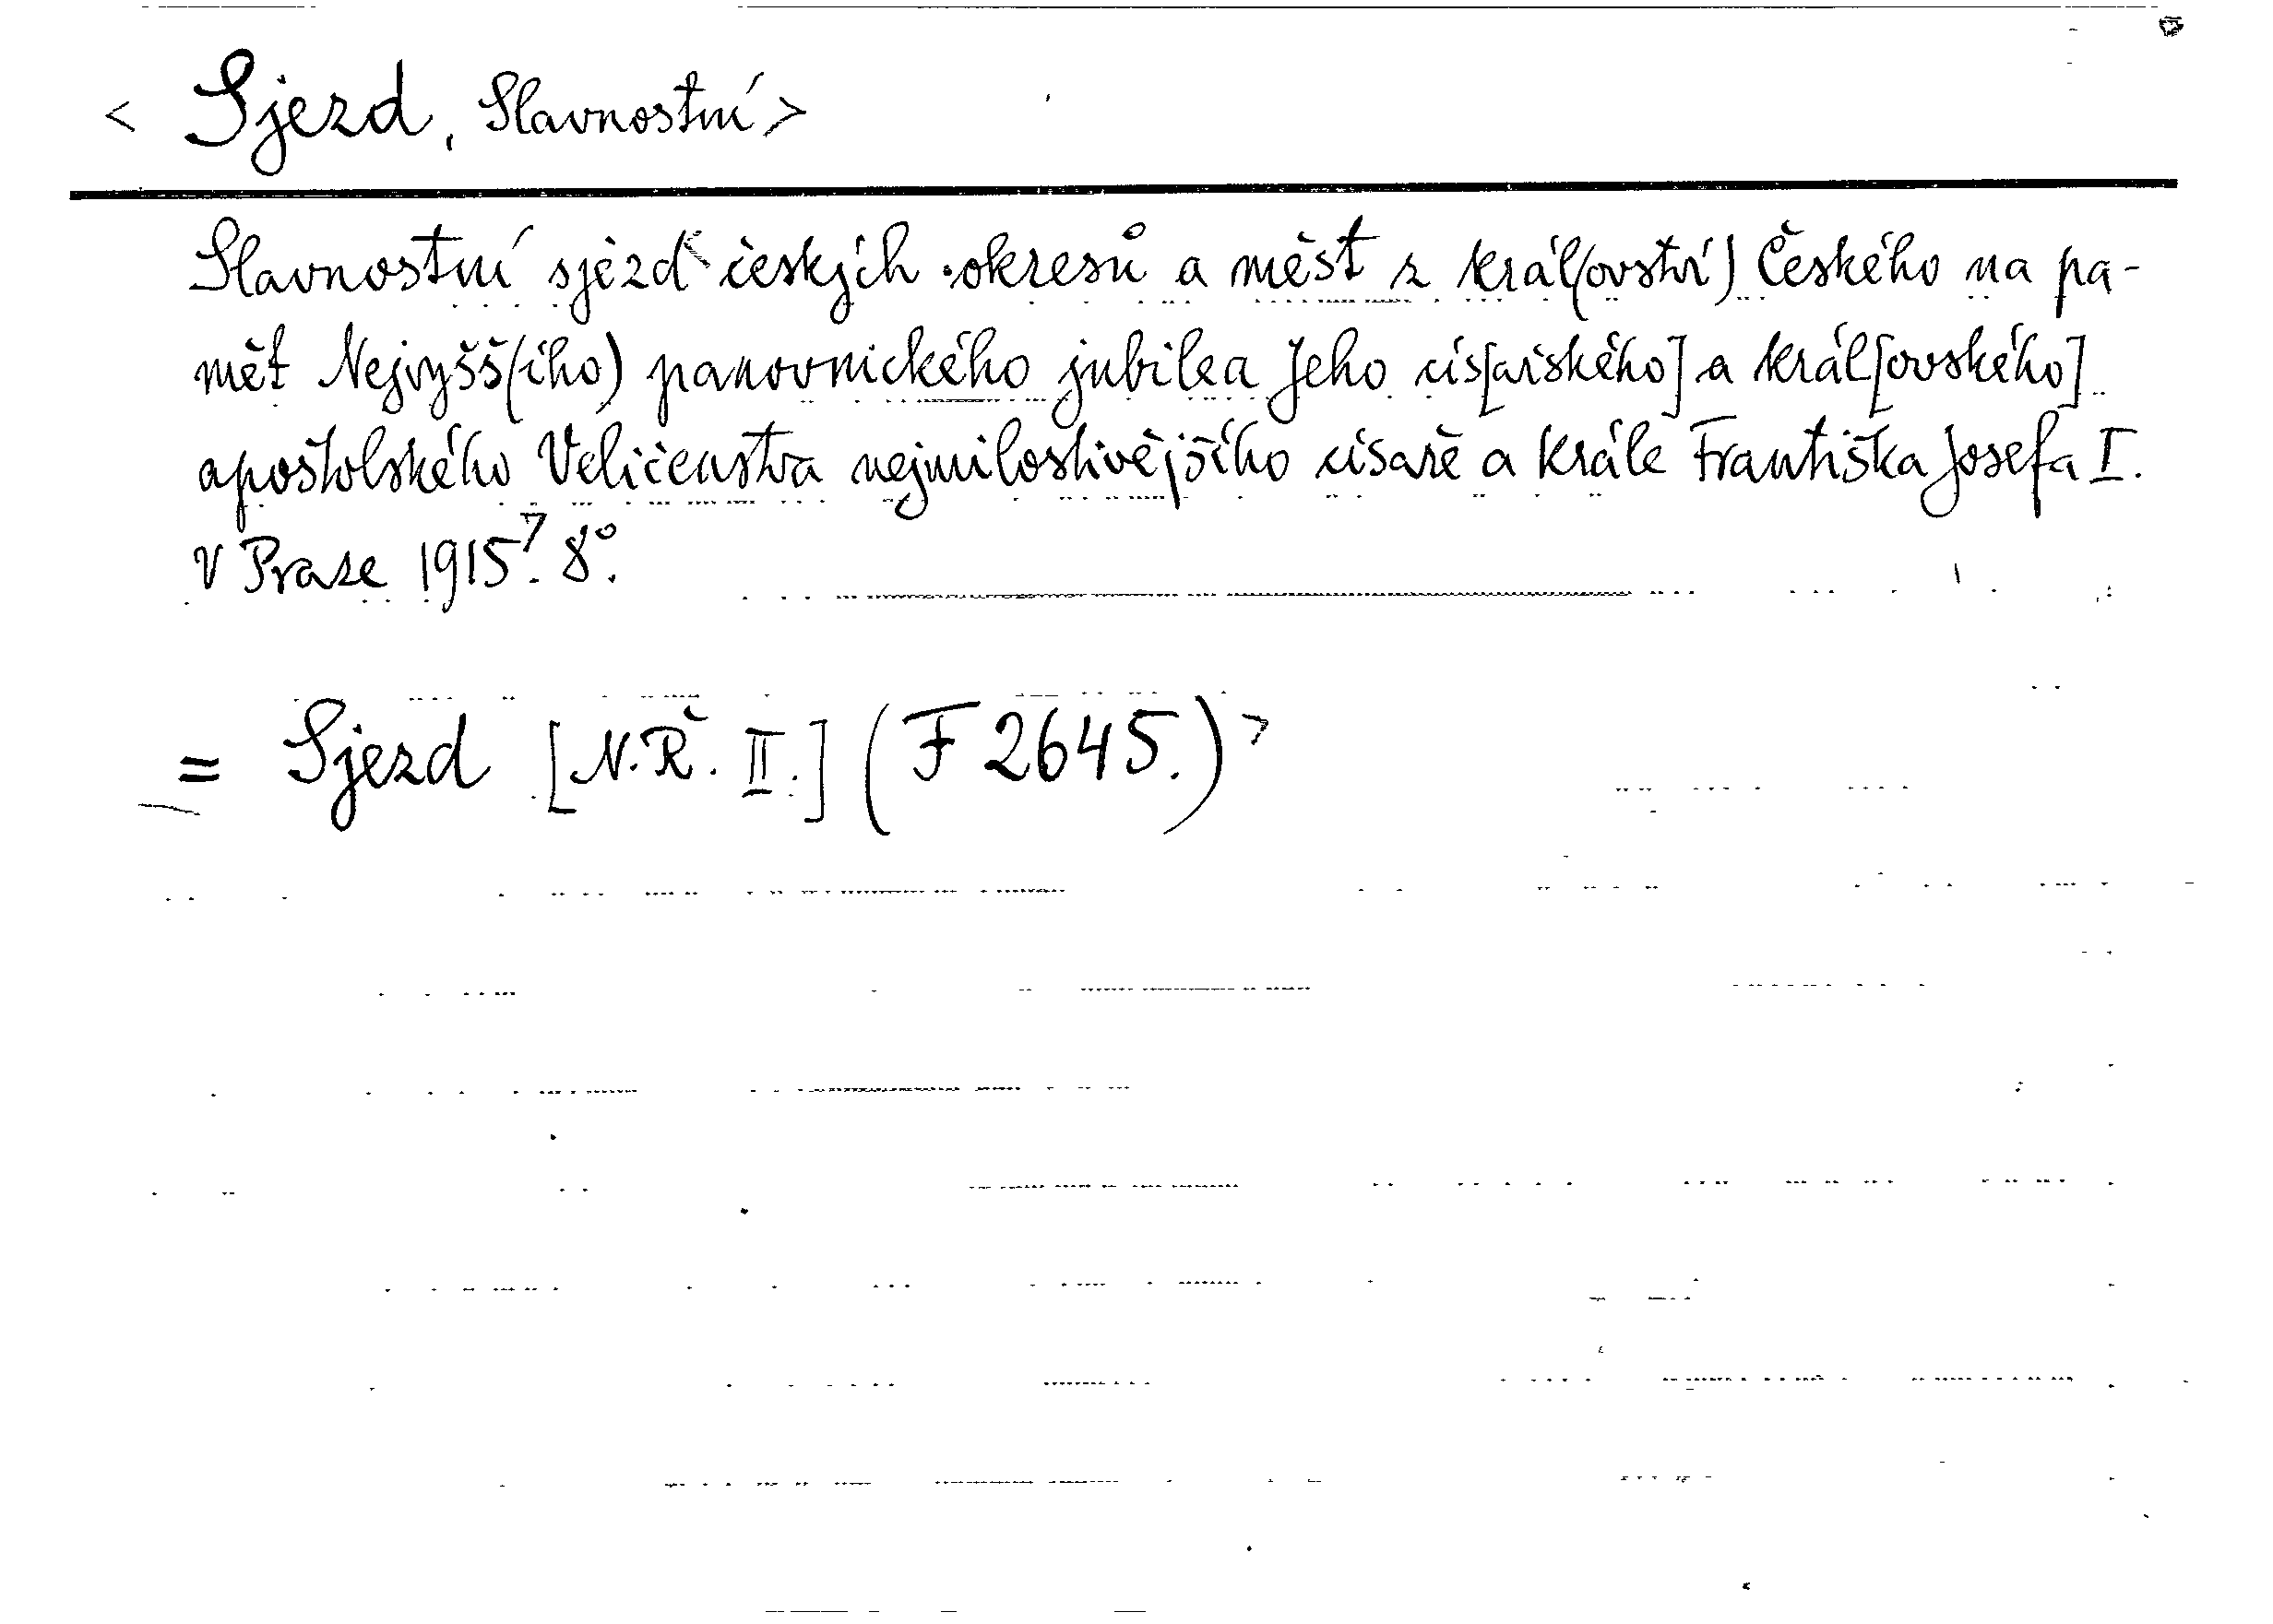 < Sjezd, Slavnostní >
Slavnostní sjezd českých okresů a měst z král(ovství) Českého na pa-
mět Nejvyšš(ího) panovnického jubilea Jeho cís[ařského] a král[ovského]
apoštolského Veličenstva nejmilostivějšího císaře a krále Františka Josefa I.
V Praze 1915?. 8°.
= Sjezd [N.Ř. II.] (F 2645.) >